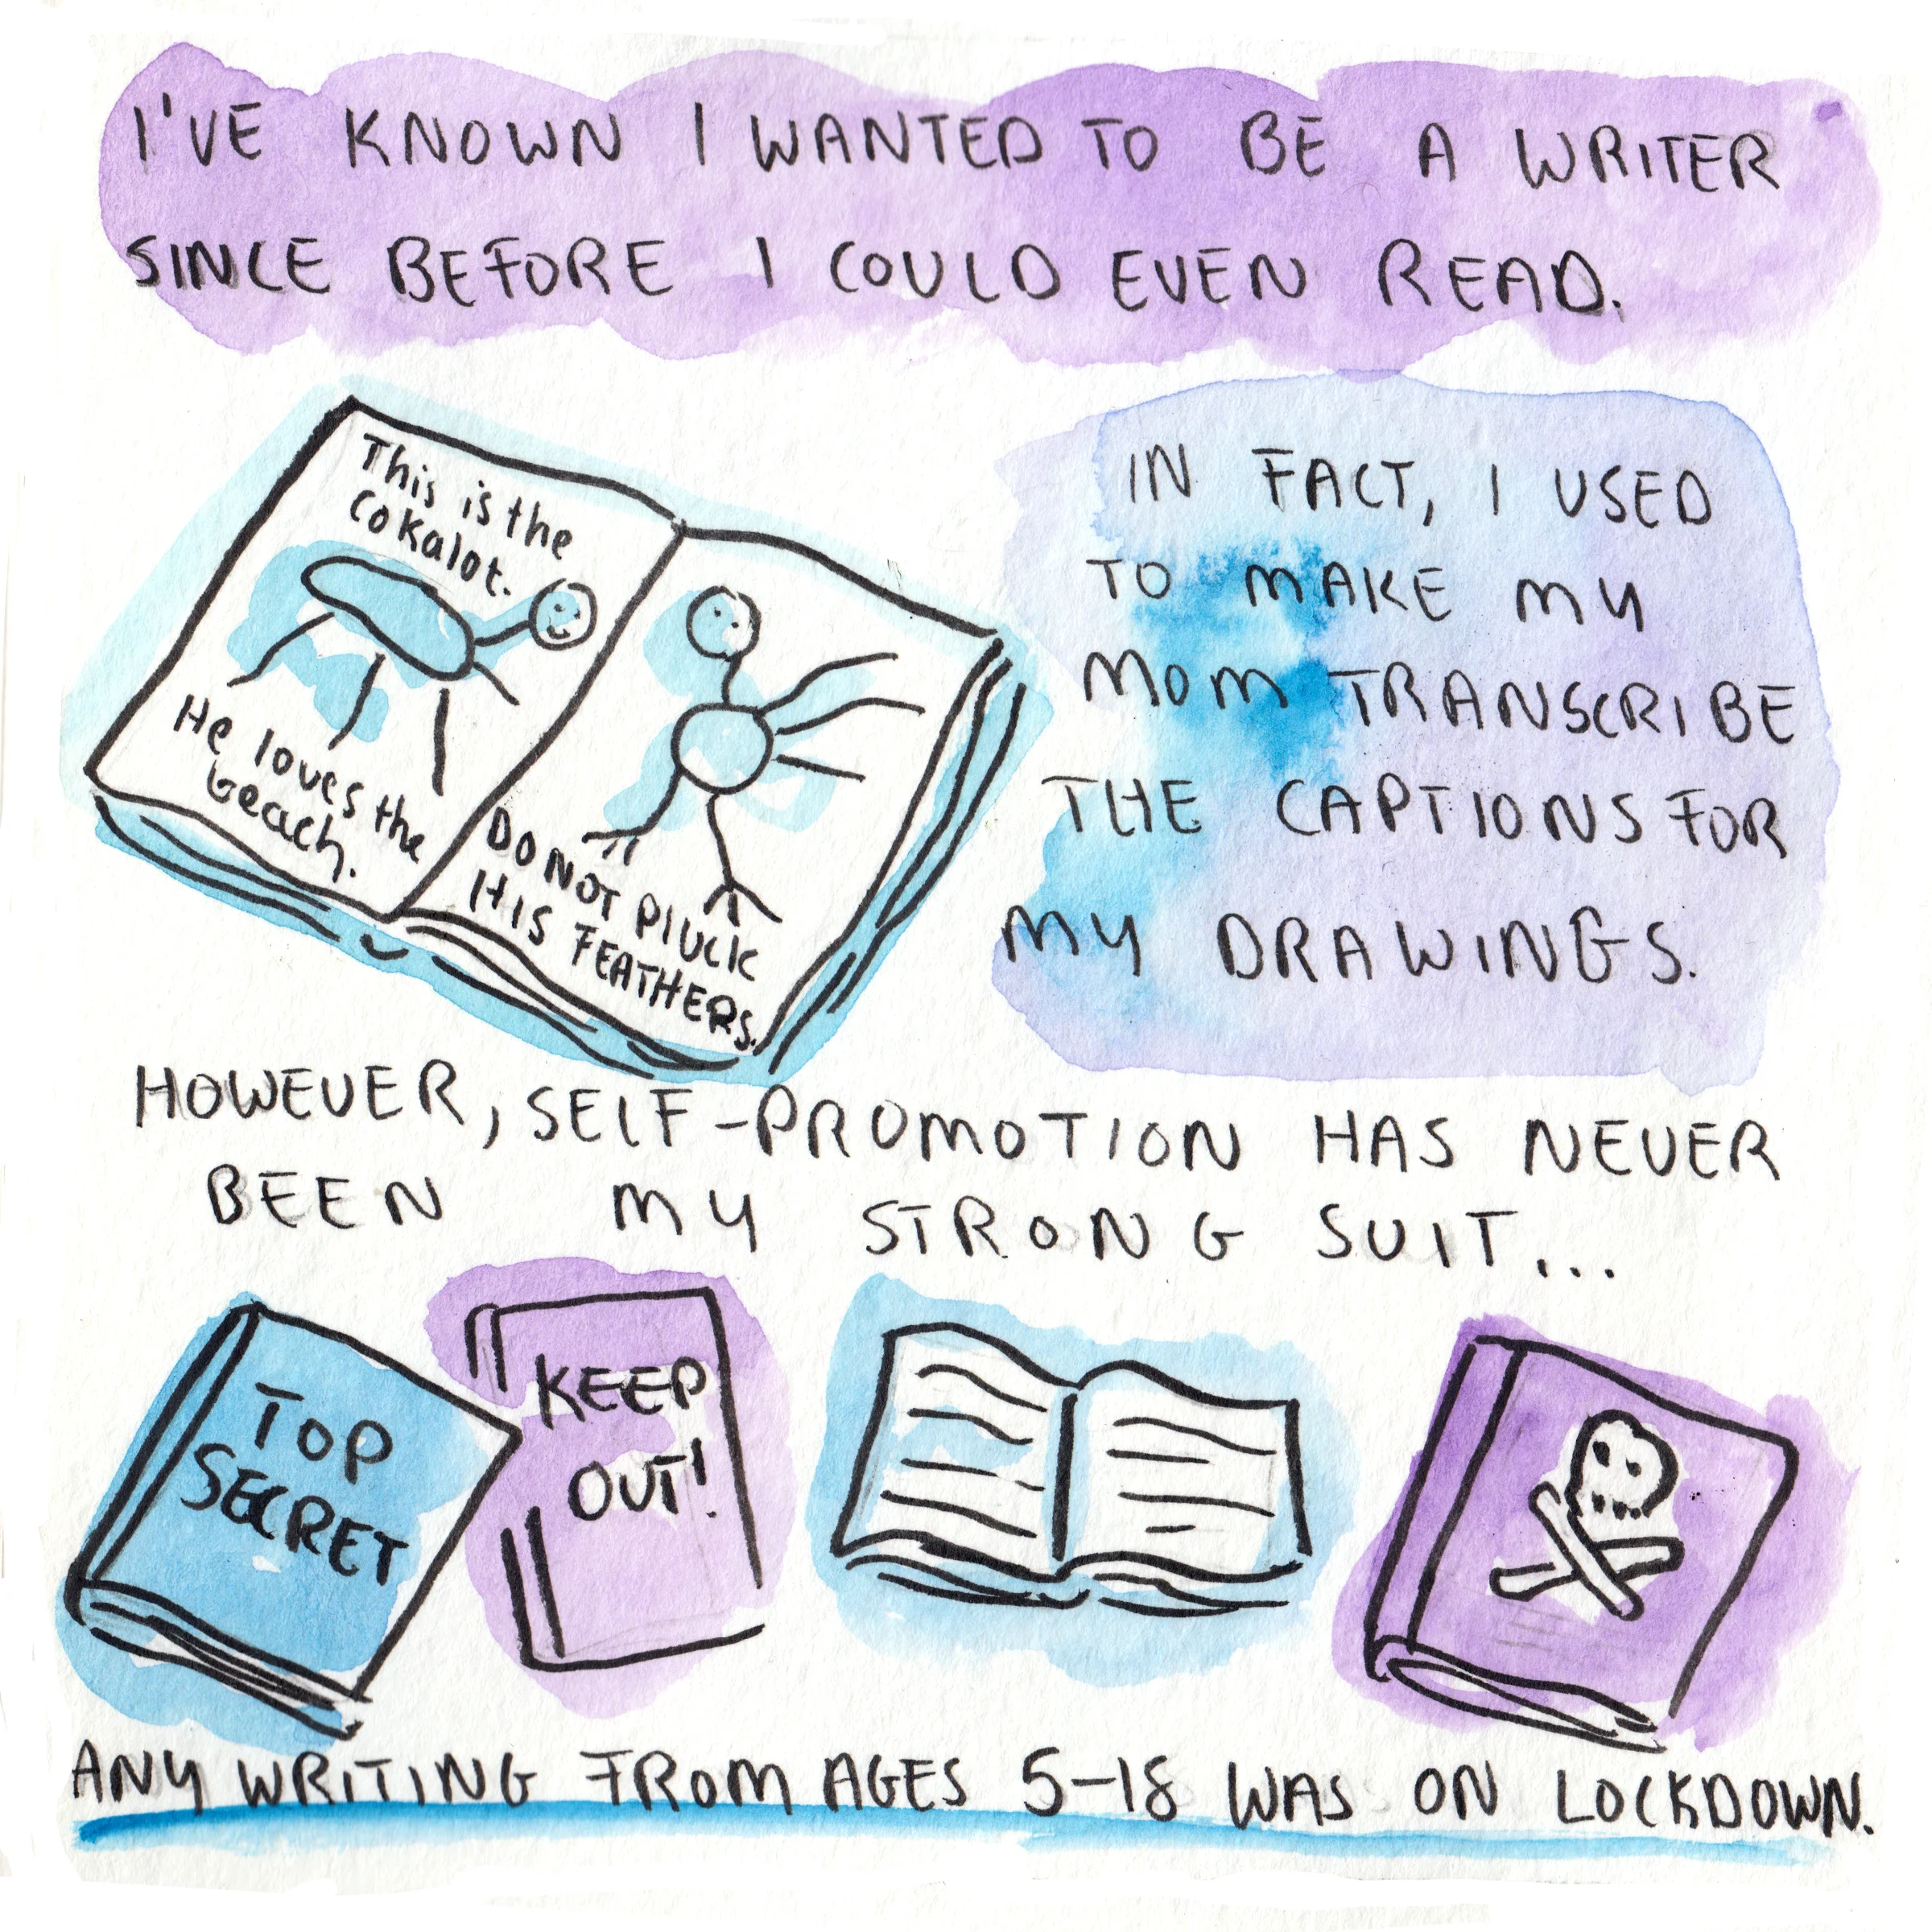 I'VE KNOWN I WANTED TO BE A WRITER
SINCE BEFORE I COULD EVEN READ.
This is the
cokalot.
He loves the
beach.
DO NOT PLUCK
HIS FEATHERS.
IN FACT, I USED
TO MAKE MY
MOM TRANSCRIBE
THE CAPTIONS FOR
MY DRAWINGS.
HOWEVER, SELF-PROMOTION HAS NEVER
BEEN MY STRONG SUIT...
TOP
SECRET
KEEP
OUT!
ANY WRITING FROM AGES 5-18 WAS ON LOCKDOWN.